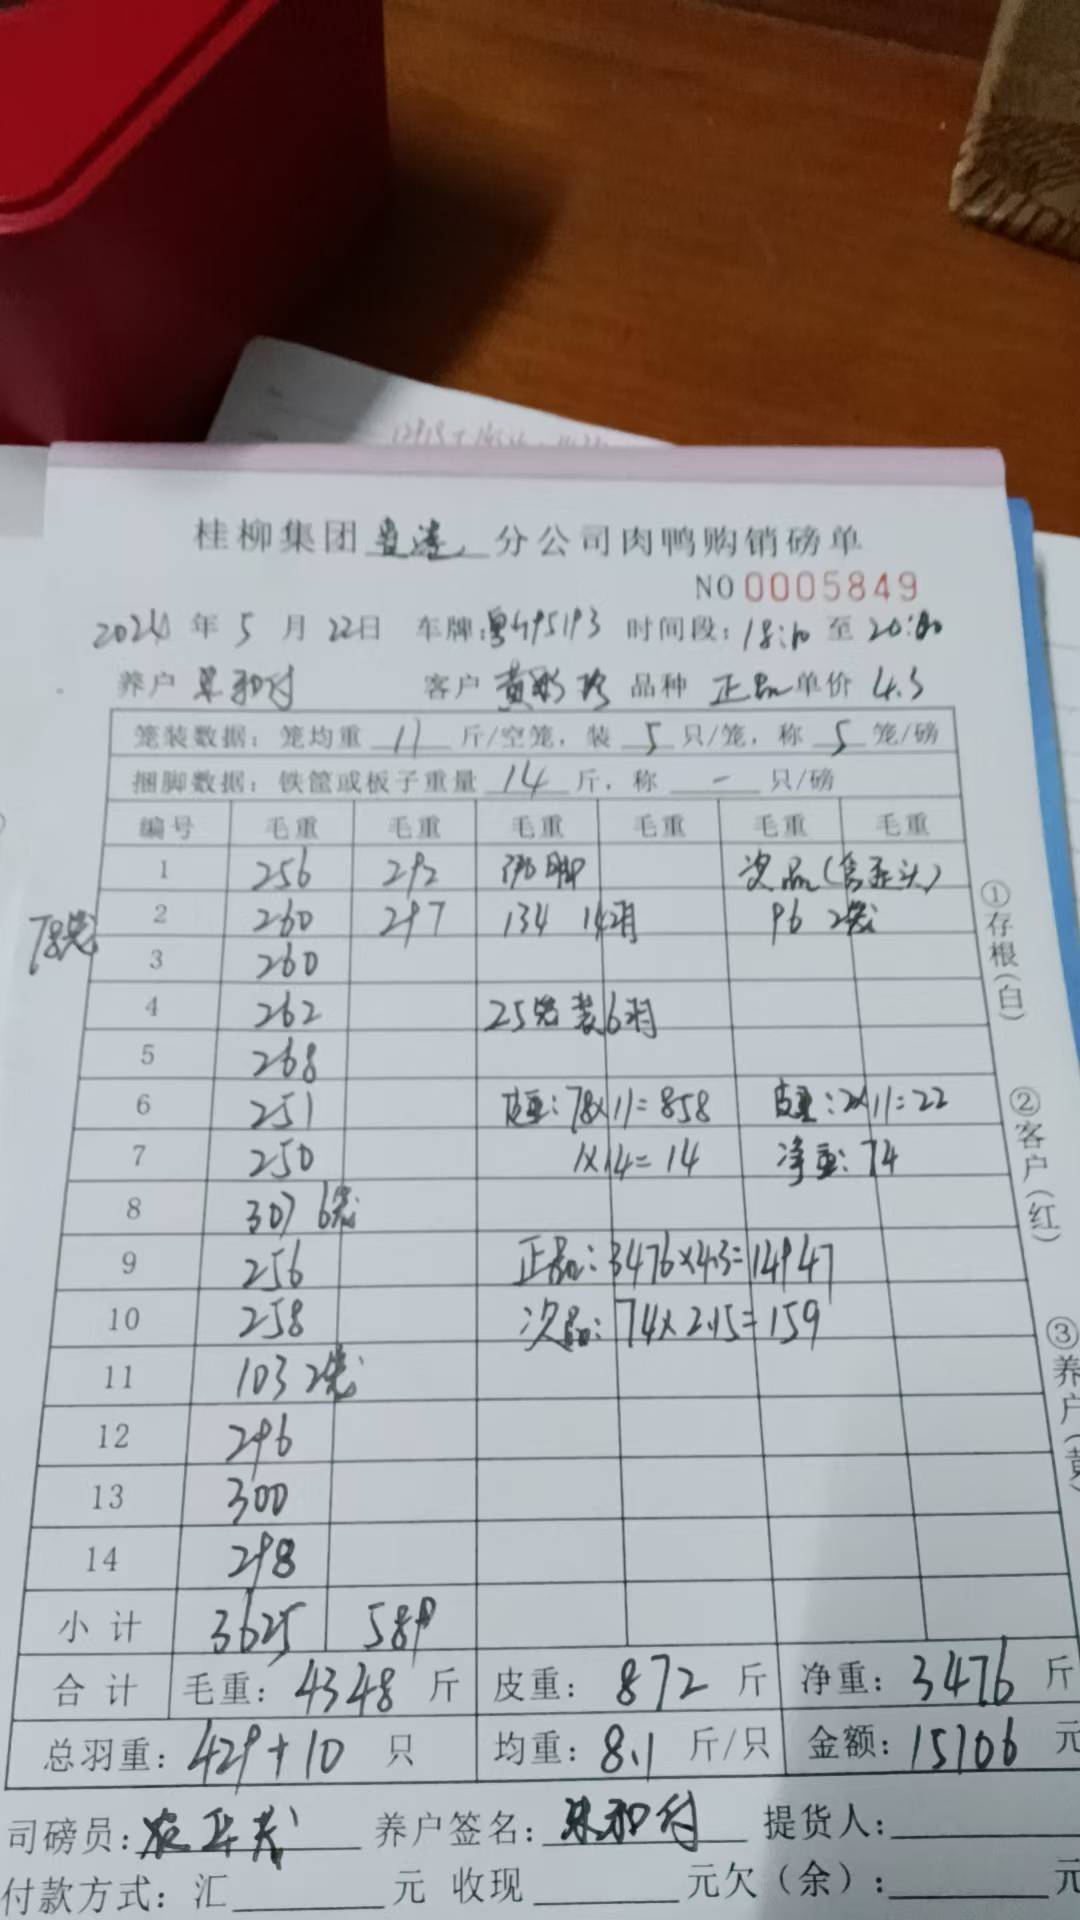 桂柳集团 分公司肉鸭购销磅单
NO 0005849
2024 年 5 月 22日 车牌: 时间段: 18:10 至 20:00
养户 客户 黄 品种 正品 单价 4.3
笼装数据: 笼均重 11 斤/空笼, 装 5 只/笼, 称 5 笼/磅
捆脚数据: 铁筐或板子重量 14 斤, 称 - 只/磅
编号 毛重 毛重 毛重 毛重 毛重 毛重
1 256 292 捆脚 次品(含歪头)
2 260 297 134 14羽 96 2笼
78笼
3 260
4 262 25笼装6羽
5 268
6 251 皮重:78×11=858 皮重:2×11=22
7 250 1×14=14 净重:74
8 307 6笼
9 256 正品:3476×4.3=14947
10 258 次品:74×2.15=159
11 103 2笼
12 296
13 300
14 298
小计 3625 589
合计 毛重: 4348 斤 皮重: 872 斤 净重: 3476 斤
总羽重: 429+10 只 均重: 8.1 斤/只 金额: 15106 元
司磅员: 养户签名: 提货人:
付款方式: 汇 元 收现 元欠(余): 元
①存根(白)
②客户(红)
③养户(黄)